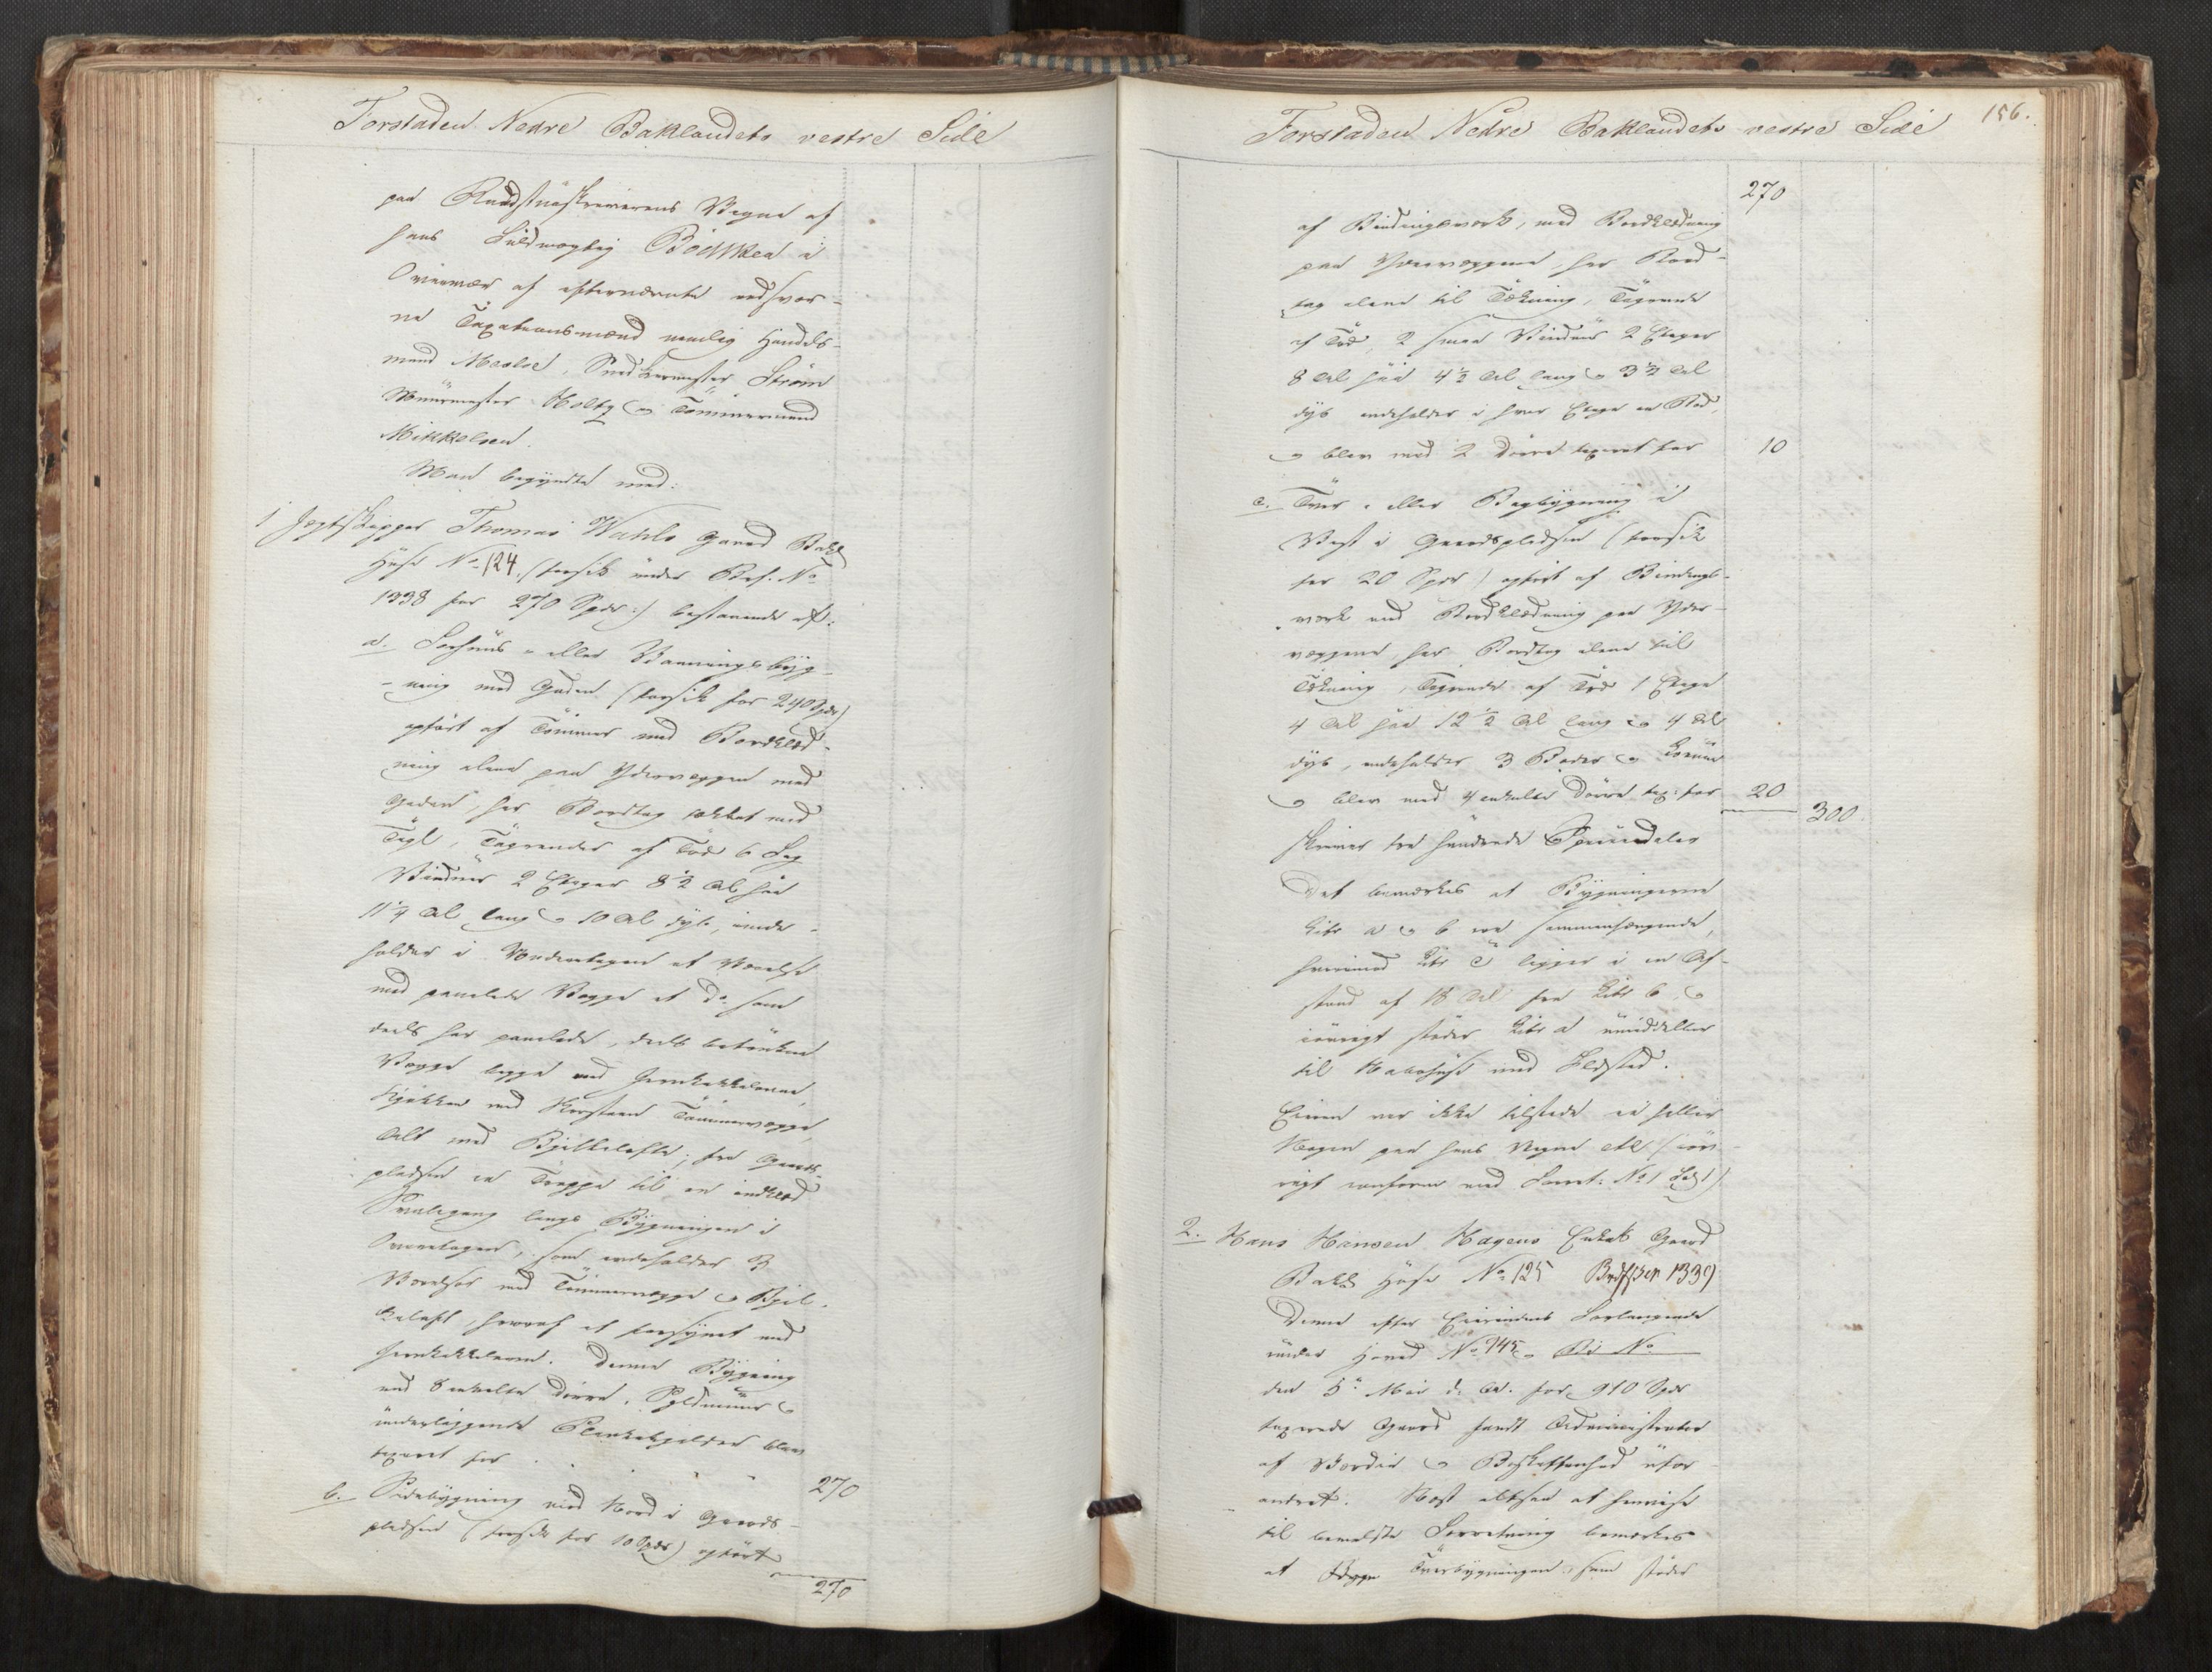 Forstaden Nedre Baklandets vestre Side
paa Raadstueskriverens Vegne af
hans Fuldmægtig Bödtker i
Overvær af efternævnte edsvor-
ne Taxationsmænd nemlig Handels-
mand Meelse, Snedkermester Ström
Muurmester Holby og Tömmermand
Mikkelsen.
Man begyndte med:
1 Jegtskipper Thomas Wahls Gaard Bakl
Huus No 124. (forsik under Bes. No
1338 for 270 Spdr:) bestaaende af:
a. Forhuus- eller Vaaningsbyg-
-ning mod Gaden (forsik for 240 Spdr)
opfört af Tömmer med Bordklæd-
ning alene paa Ydervæggen mod
Gaden, har Bordtag tækket med
Tegl, Tagrender af Træ 6 Fag
Vinduer 2 Etager 8½ Al höi
11¼ Al lang og 10 Al dyb, inde-
holder i Underetagen et Værelse
med panelede Vægge et do som
deels har panelede, deels betrukne
Vægge begge med Jernkakkelovne,
Kjökken med Skorsteen Tömmervægge,
Alt med Bjelkelofte; fra Gaards-
pladsen en Trappe til en indklæd
Svalegang langs Bygningen i
Overetagen, som indeholder 3
Værelser med Tömmervægge og Bjel-
keloft, hvoraf et forsynet med
Jernkakkelovn. Denne Bygning
med 8 enkelte Dörre, Fyldmuur og
underliggende Plankekjelder blev
taxeret for . . . 270
b. Sidebygning mod Nord i Gaards-
pladsen (forsik for 10 Spdr) opfört
270
Forstaden Nedre Baklandets vestre Side
156.
270
af Bindingsværk, med Bordklædning
paa Ydervæggene, har Bord-
tag alene til Tækning, Tagrende
af Træ, 2 smaa Vinduer 2 Etager
8 Al höi 4½ Al lang og 3½ Al
dyb indeholder i hver Etage en Bod,
og blev med 2 Dörre taxeret for 10
c. Tver- eller Bagbygning i
Vest i Gaardspladsen (forsik
for 20 Spdr) opfört af Bindings-
værk med Bordklædning paa Yder-
væggene, har Bordtag alene til
Tækning, Tagrender af Træ 1 Etage
4 Al höi 12½ Al lang og 4 Al
dyb, indeholder 3 Boder og
og blev med 4 enkelte Dörre tax: for 20
300.
skriver tre hundrede Speciedaler
Det bemærkes at Bygningerne
Litr a og b ere sammenhængende,
hvorimod Litr c ligger i en Af-
stand af 18 Al fra Litr b, og
iövrigt stöder Litr a umiddelbar
til Nabohuse med Ildsted.
Eieren var ikke tilstede ei heller
Nogen paa hans Vegne etc (iöv-
rigt conform med Forret: No 1)
2. Hans Hansen Hagens Enkes Gaard
Bakl Huus No 125 1339
Denne efter Eierindens Forlangende
under Hoved No 145 og Bi No
den 5te Mai d. A. for 910 Spdr
taxerede Gaard fandt Administrator
af Værdie og Beskaffenhed ufor-
andret. Næst altsaa at henvise
til bemeldte Forretning bemærkes
at Tverbygningen, som stöder